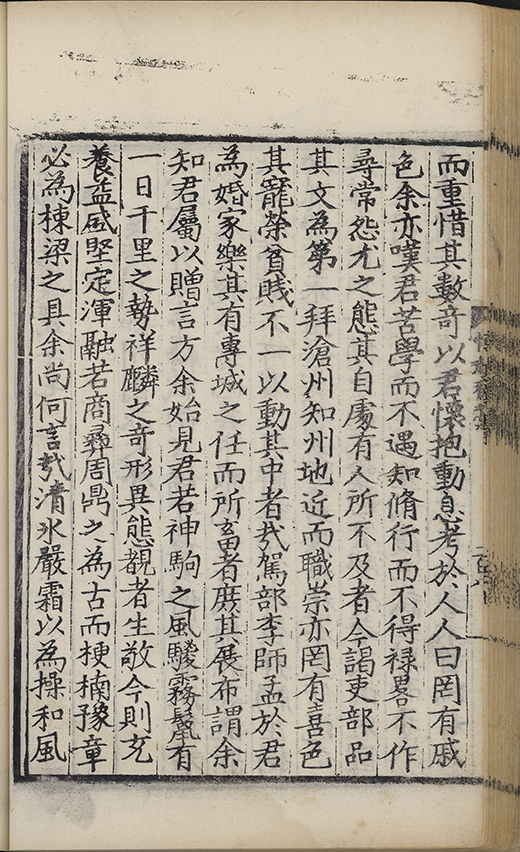 而重惜其數奇以君懷抱動息考於人人曰罔有戚
色余亦嘆君苦學而不遇知脩行而不得祿畧不作
尋常怨尤之態其自處有人所不及者今謁吏部品
其文為第一拜滄州知州地近而職崇亦罔有喜色
其寵榮貧賤不一以動其中者㢤駕部李師孟於君
為婚家樂其有專城之任而所畜者庶其展布謂余
知君屬以贈言方余始見君若神駒之風騣霧鬣有
一日千里之勢祥麟之奇形異態覩者生敬今則充
養益盛堅定渾融若商彝周鼎之為古而梗楠豫章
必為棟梁之具余尚何言㢤清氷嚴霜以為操和風